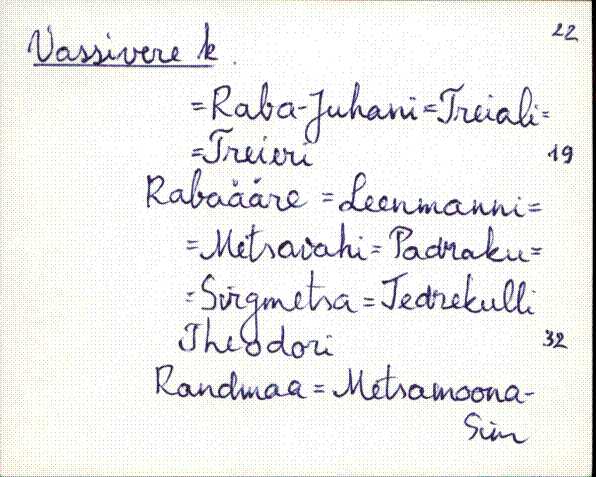 22
Vassivere k.
= Raba-Juhani = Treiali =
= Treieri 19
Rabaääre = Leenmanni =
= Metsavahi = Padraku =
= Sirgmetsa = Tedrekulli
Theodori 32
Randmaa = Metsamoona-
Sim